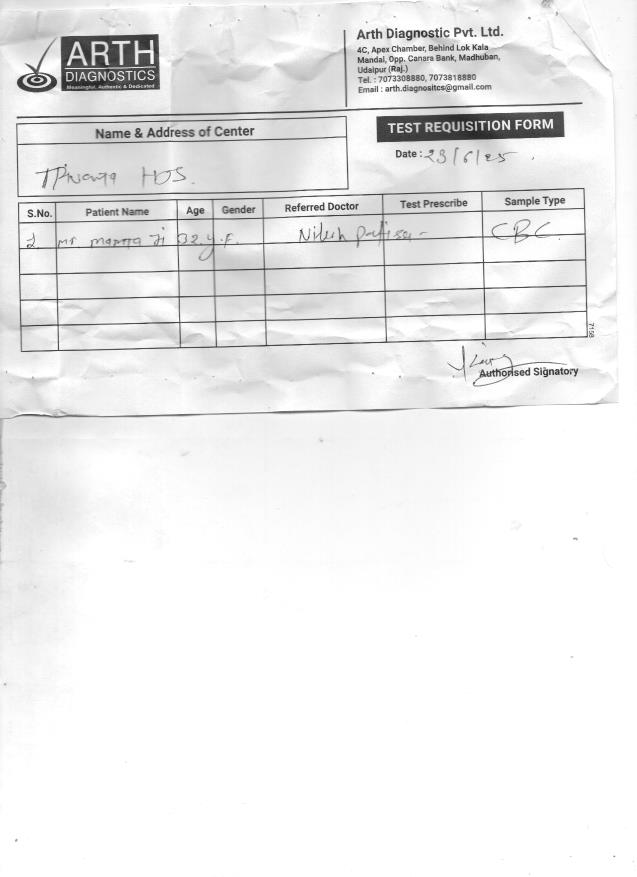 ARTH
DIAGNOSTICS
Meaningful, Authentic & Dedicated
Arth Diagnostic Pvt. Ltd.
4C, Apex Chamber, Behind Lok Kala
Mandal, Opp. Canara Bank, Madhuban,
Udaipur (Raj.)
Tel. : 7073308880, 7073818880
Email : arth.diagnositcs@gmail.com
Name & Address of Center
TEST REQUISITION FORM
Date : 23/6/25.
HOS.
S.No. Patient Name Age Gender Referred Doctor Test Prescribe Sample Type
mr ji 32.y.F. Nilesh CBC
7158
Authorised Signatory